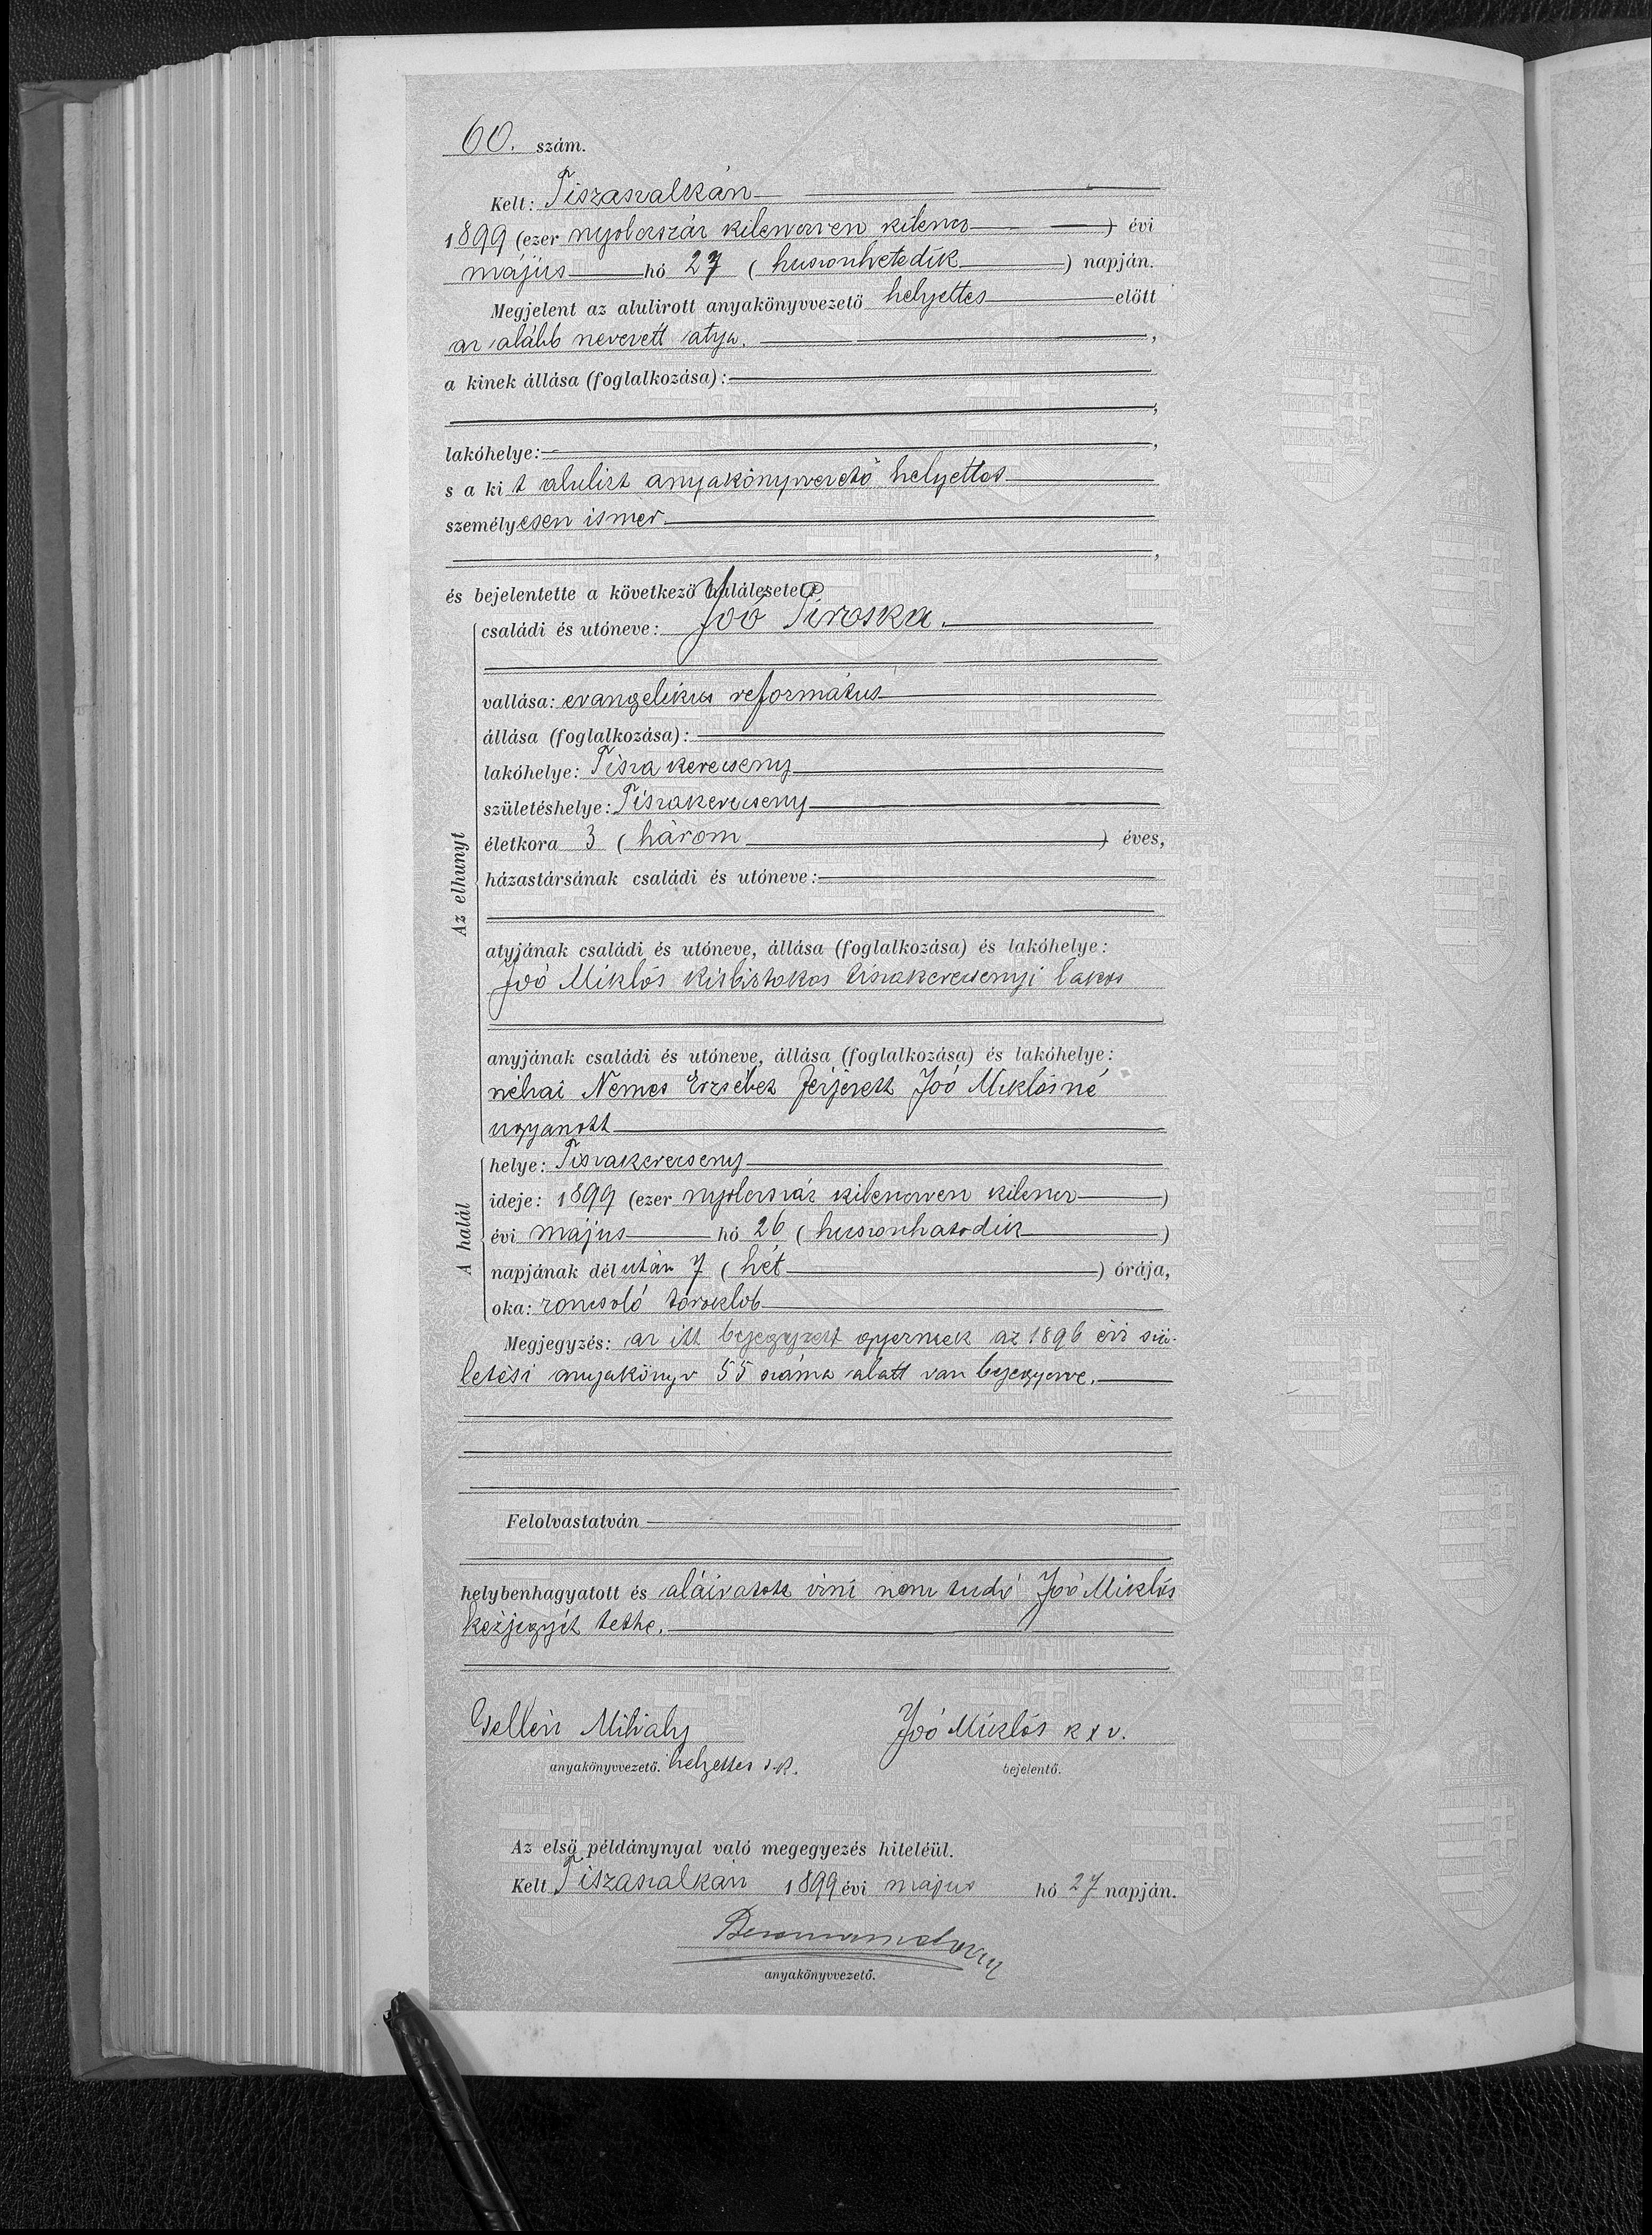 60. szám.
Kelt: Tiszaszalkán
1899 (ezer nyolczszáz kilenczven kilencz ) évi
május hó 27 ( huszonhetedik ) napján.
Megjelent az alulirott anyakönyvvezető helyettes előtt
az alább nevezett atya. ,
a kinek állása (foglalkozása):
,
lakóhelye: ,
s a kit alulirt anyakönyvvezető helyettes
személyesen ismer
,
és bejelentette a következő halálesetet:
családi és utóneve: Joó Piroska.
vallása: evangelikus református
állása (foglalkozása):
lakóhelye: Tiszakerecseny
születéshelye: Tiszakerecseny
életkora 3 ( három ) éves,
házastársának családi és utóneve:
Az elhunyt
atyjának családi és utóneve, állása (foglalkozása) és lakóhelye:
Joó Miklós kisbirtokos tiszakerecsenyi lakos
anyjának családi és utóneve, állása (foglalkozása) és lakóhelye:
néhai Nemes Erzsébet férjezett Joó Miklósné
ugyanott
A halál
helye: Tiszakerecseny
ideje: 1899 (ezer nyolczszáz kilenczven kilencz )
évi május hó 26 ( huszonhatodik )
napjának délután 7 ( hét ) órája,
oka: roncsoló toroklob
Megjegyzés: az itt bejegyzett gyermek az 1896 évi szü-
letési anyakönyv 55 száma alatt van bejegyezve.
Felolvastatván
helybenhagyatott és aláiratott irni nem tudó Joó Miklós
kézjegyét tette.
Gellén Mihály Joó Miklós k x v.
anyakönyvvezető. helyettes s.k. bejelentő.
Az első példánynyal való megegyezés hiteléül.
Kelt Tiszaszalkán 1899 évi május hó 27 napján.
anyakönyvvezető.